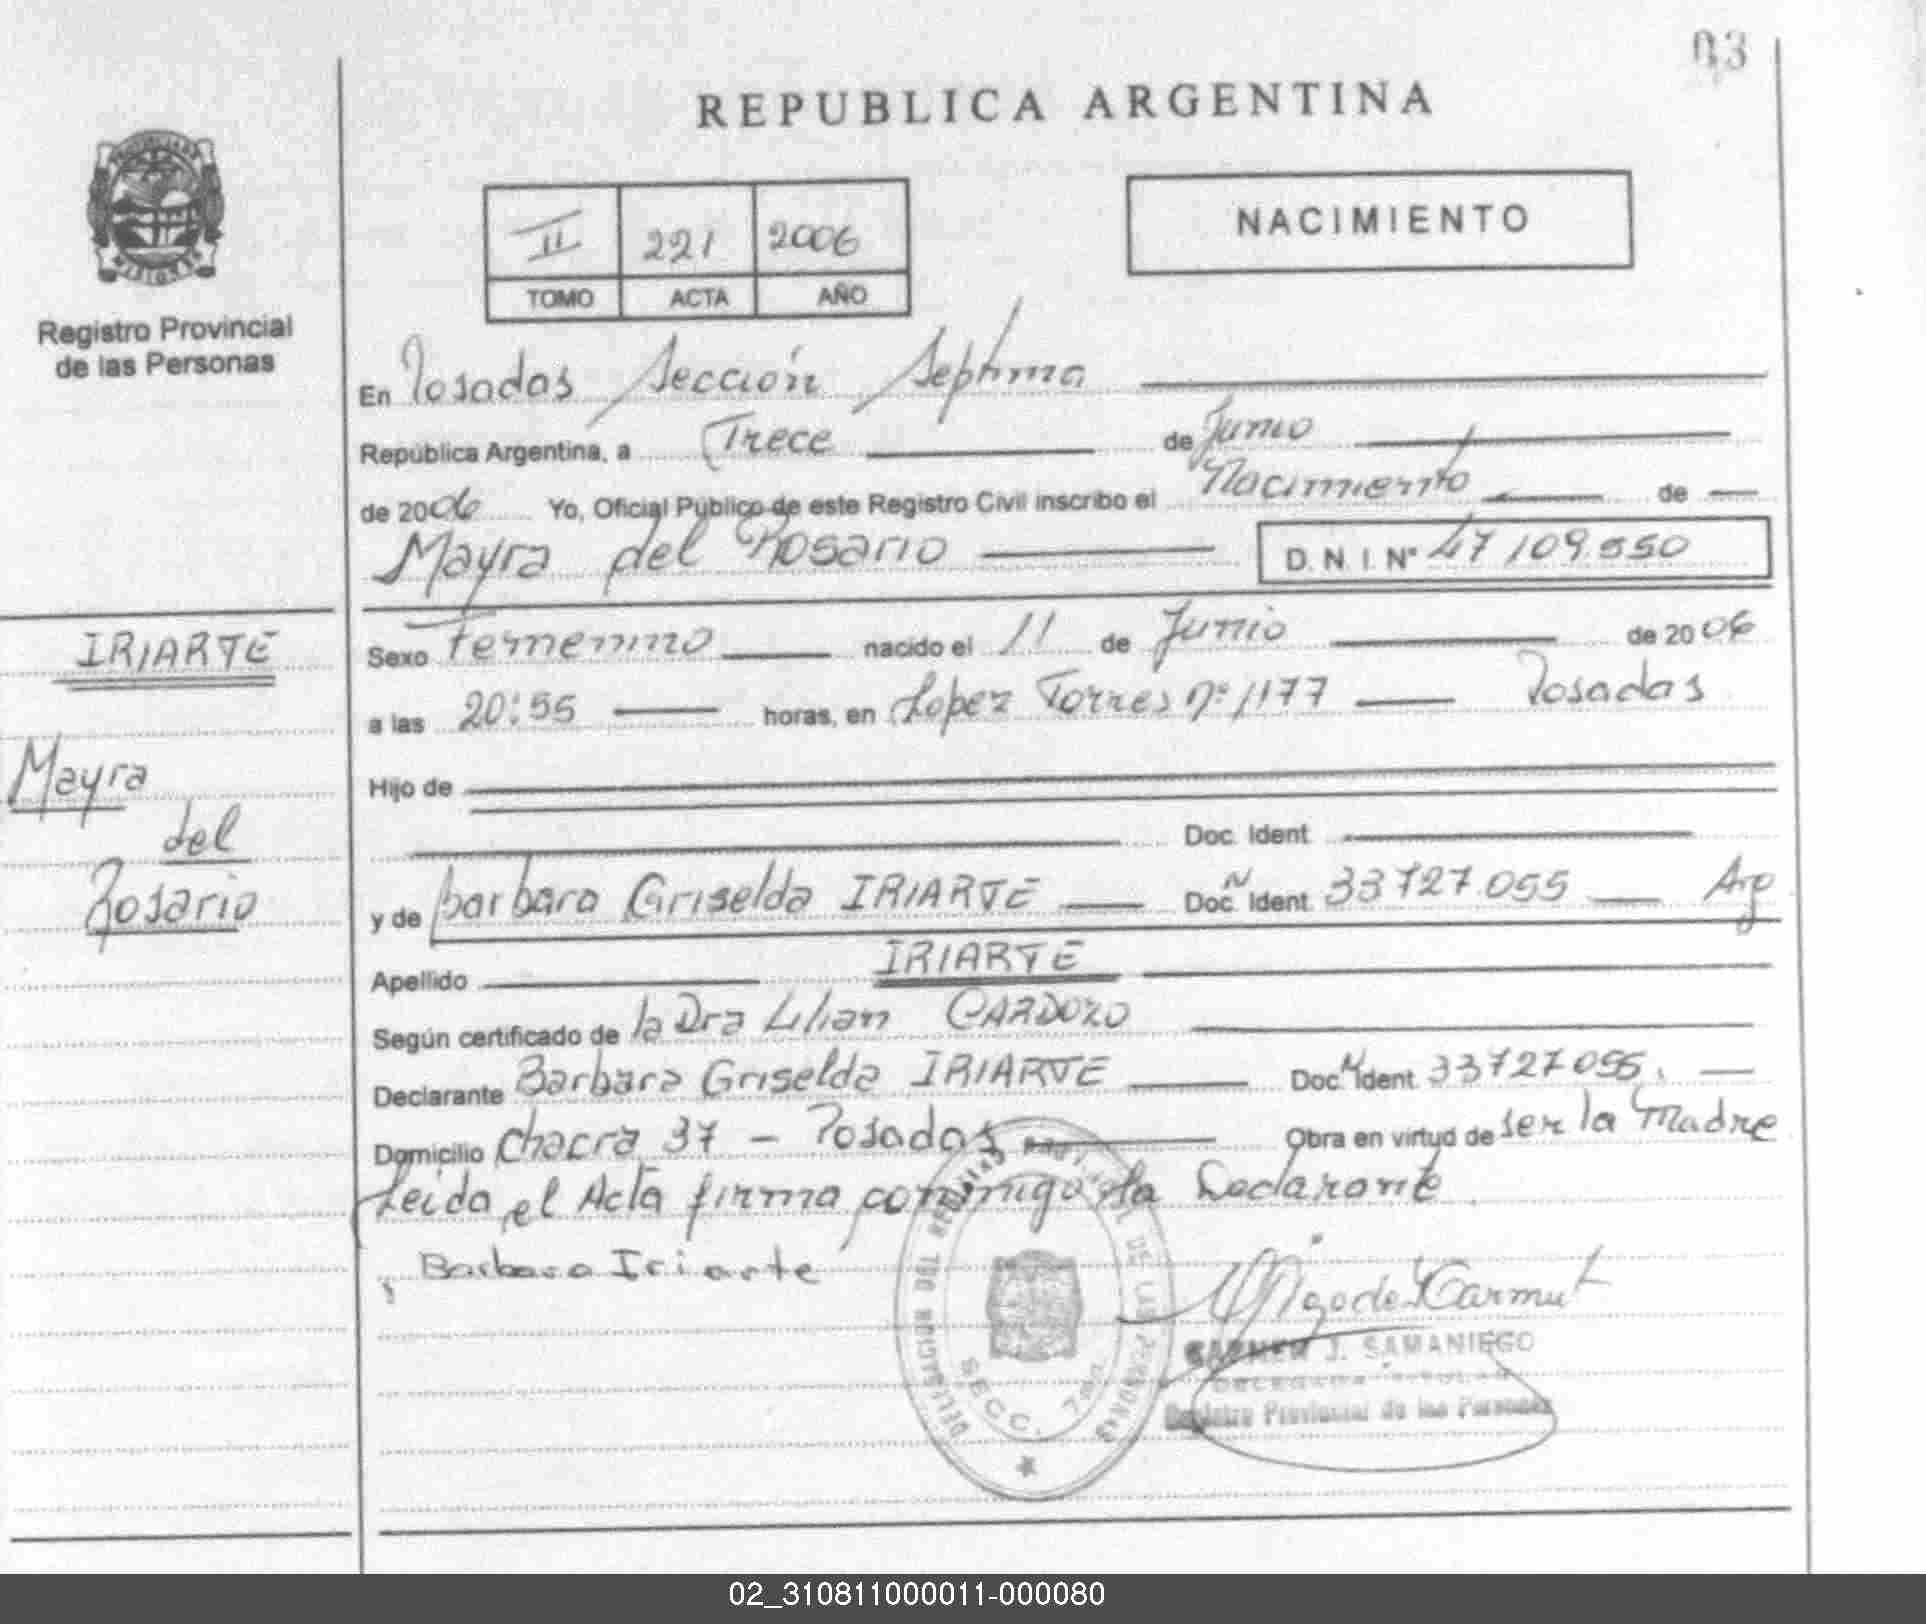 03
REPUBLICA ARGENTINA
PROVINCIA DE
MISIONES
Registro Provincial
de las Personas
II 221 2006
TOMO ACTA AÑO
NACIMIENTO
En Posadas Sección Septima
República Argentina, a Trece de Junio
de 2006 Yo, Oficial Público de este Registro Civil inscribo el Nacimiento de
Mayra del Rosario D.N.I. N° 47109.550
IRIARTE
Mayra
del
Rosario
Sexo Femenino nacido el 11 de Junio de 2006
a las 20:55 horas, en Lopez Torres nº 1177 Posadas
Hijo de
Doc. Ident.
y de Barbara Griselda IRIARTE Doc. N Ident. 33727.055 Arg
Apellido IRIARTE
Según certificado de la Dra Lilian CARDOZO
Declarante Barbara Griselda IRIARTE Doc. N Ident. 33727055.
Domicilio Chacra 37 - Posadas Obra en virtud de ser la Madre
Leida el Acta firma conmigo la Declarante
Barbara Iriarte
DELEGACION DEL REGISTRO PROVINCIAL DE LAS PERSONAS
SECC. 7ma
CARMEN J. SAMANIEGO
DELEGADA TITULAR
Registro Provincial de las Personas
02_310811000011-000080